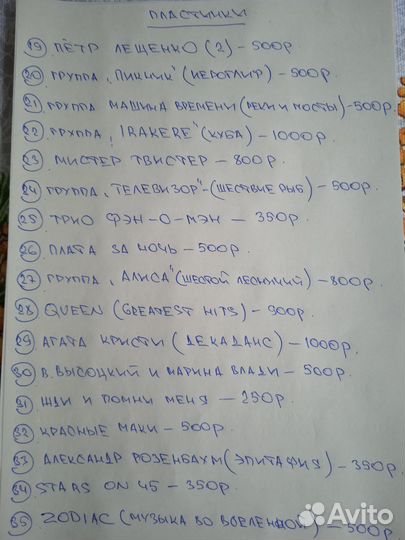 ПЛАСТИНКИ
19 ПЁТР ЛЕЩЕНКО (2) - 500р.
20 ГРУППА „ПИКНИК" (ИЕРОГЛИФ) - 500р.
21 ГРУППА МАШИНА ВРЕМЕНИ (РЕКИ И МОСТЫ) - 500р.
22 ГРУППА „IRAKERE" (КУБА) - 1000р.
23 МИСТЕР ТВИСТЕР - 800р.
24 ГРУППА „ТЕЛЕВИЗОР" - (ШЕСТВИЕ РЫБ) - 500р.
25 ТРИО ФЭН-О-МЭН - 350р.
26 ПЛАТА ЗА НОЧЬ - 500р.
27 ГРУППА „АЛИСА" (ШЕСТОЙ ЛЕСНИЧИЙ) - 800р.
28 QUEEN (GREATEST HITS) - 900р.
29 АГАТА КРИСТИ (ДЕКАДАНС) - 1000р.
30 В. ВЫСОЦКИЙ И МАРИНА ВЛАДИ - 500р.
31 ЖДИ И ПОМНИ МЕНЯ - 250р.
32 КРАСНЫЕ МАКИ - 500р.
33 АЛЕКСАНДР РОЗЕНБАУМ (ЭПИТАФИЯ) - 350р.
34 STARS ON 45 - 350р.
35 ZODIAC (МУЗЫКА ВО ВСЕЛЕННОЙ) - 500р.
Avito